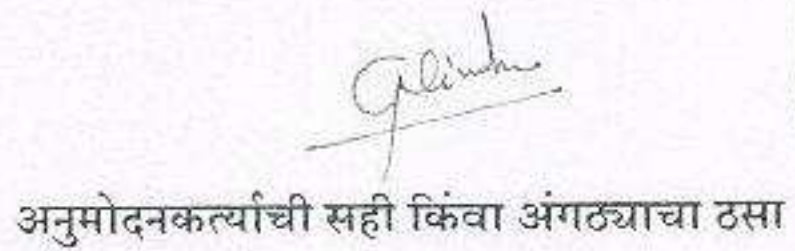 अनुमोदनकर्त्याची सही किंवा अंगठ्याचा ठसा